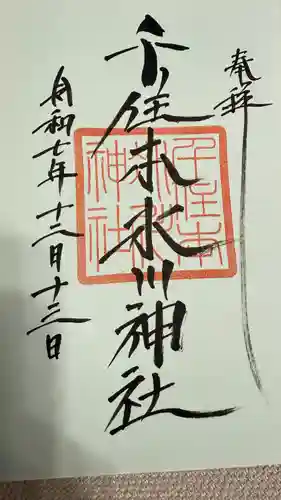 奉拝
千住本氷川神社
令和七年十二月十三日
千住本
氷川
神社